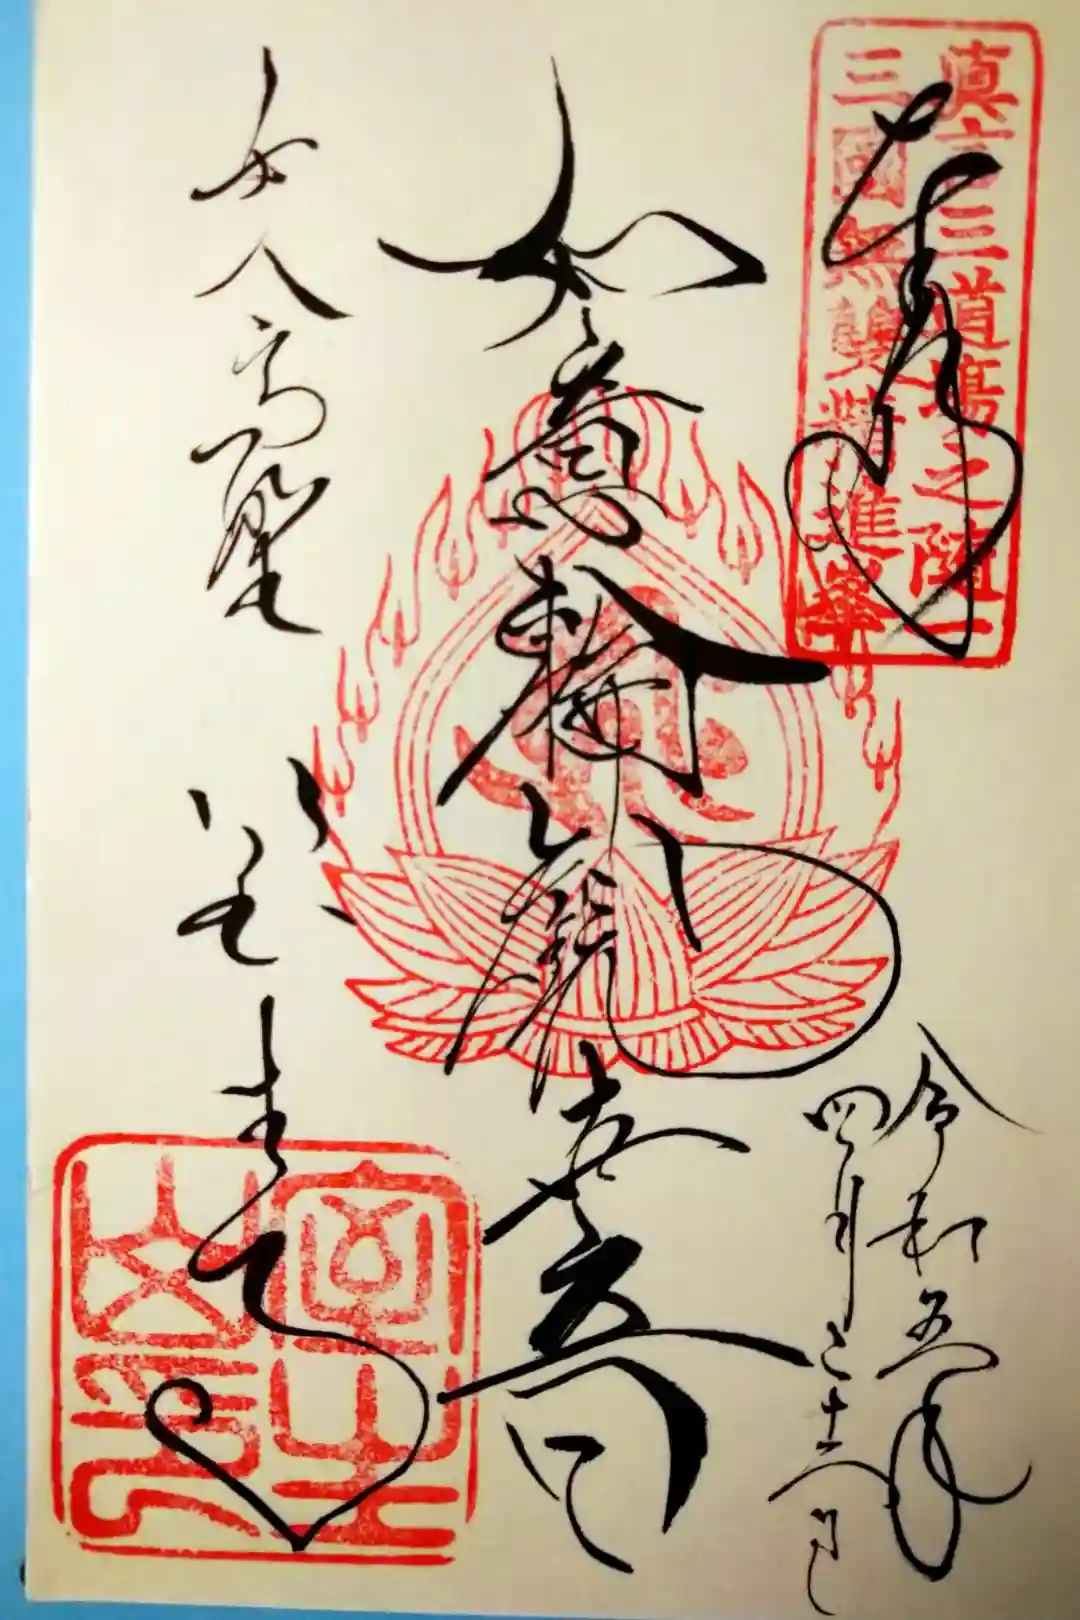 眞言三道場之随一
三國無雙精進峯
奉拝
令和五年
四月二十六日
如意輪観世音
女人高野 室生寺